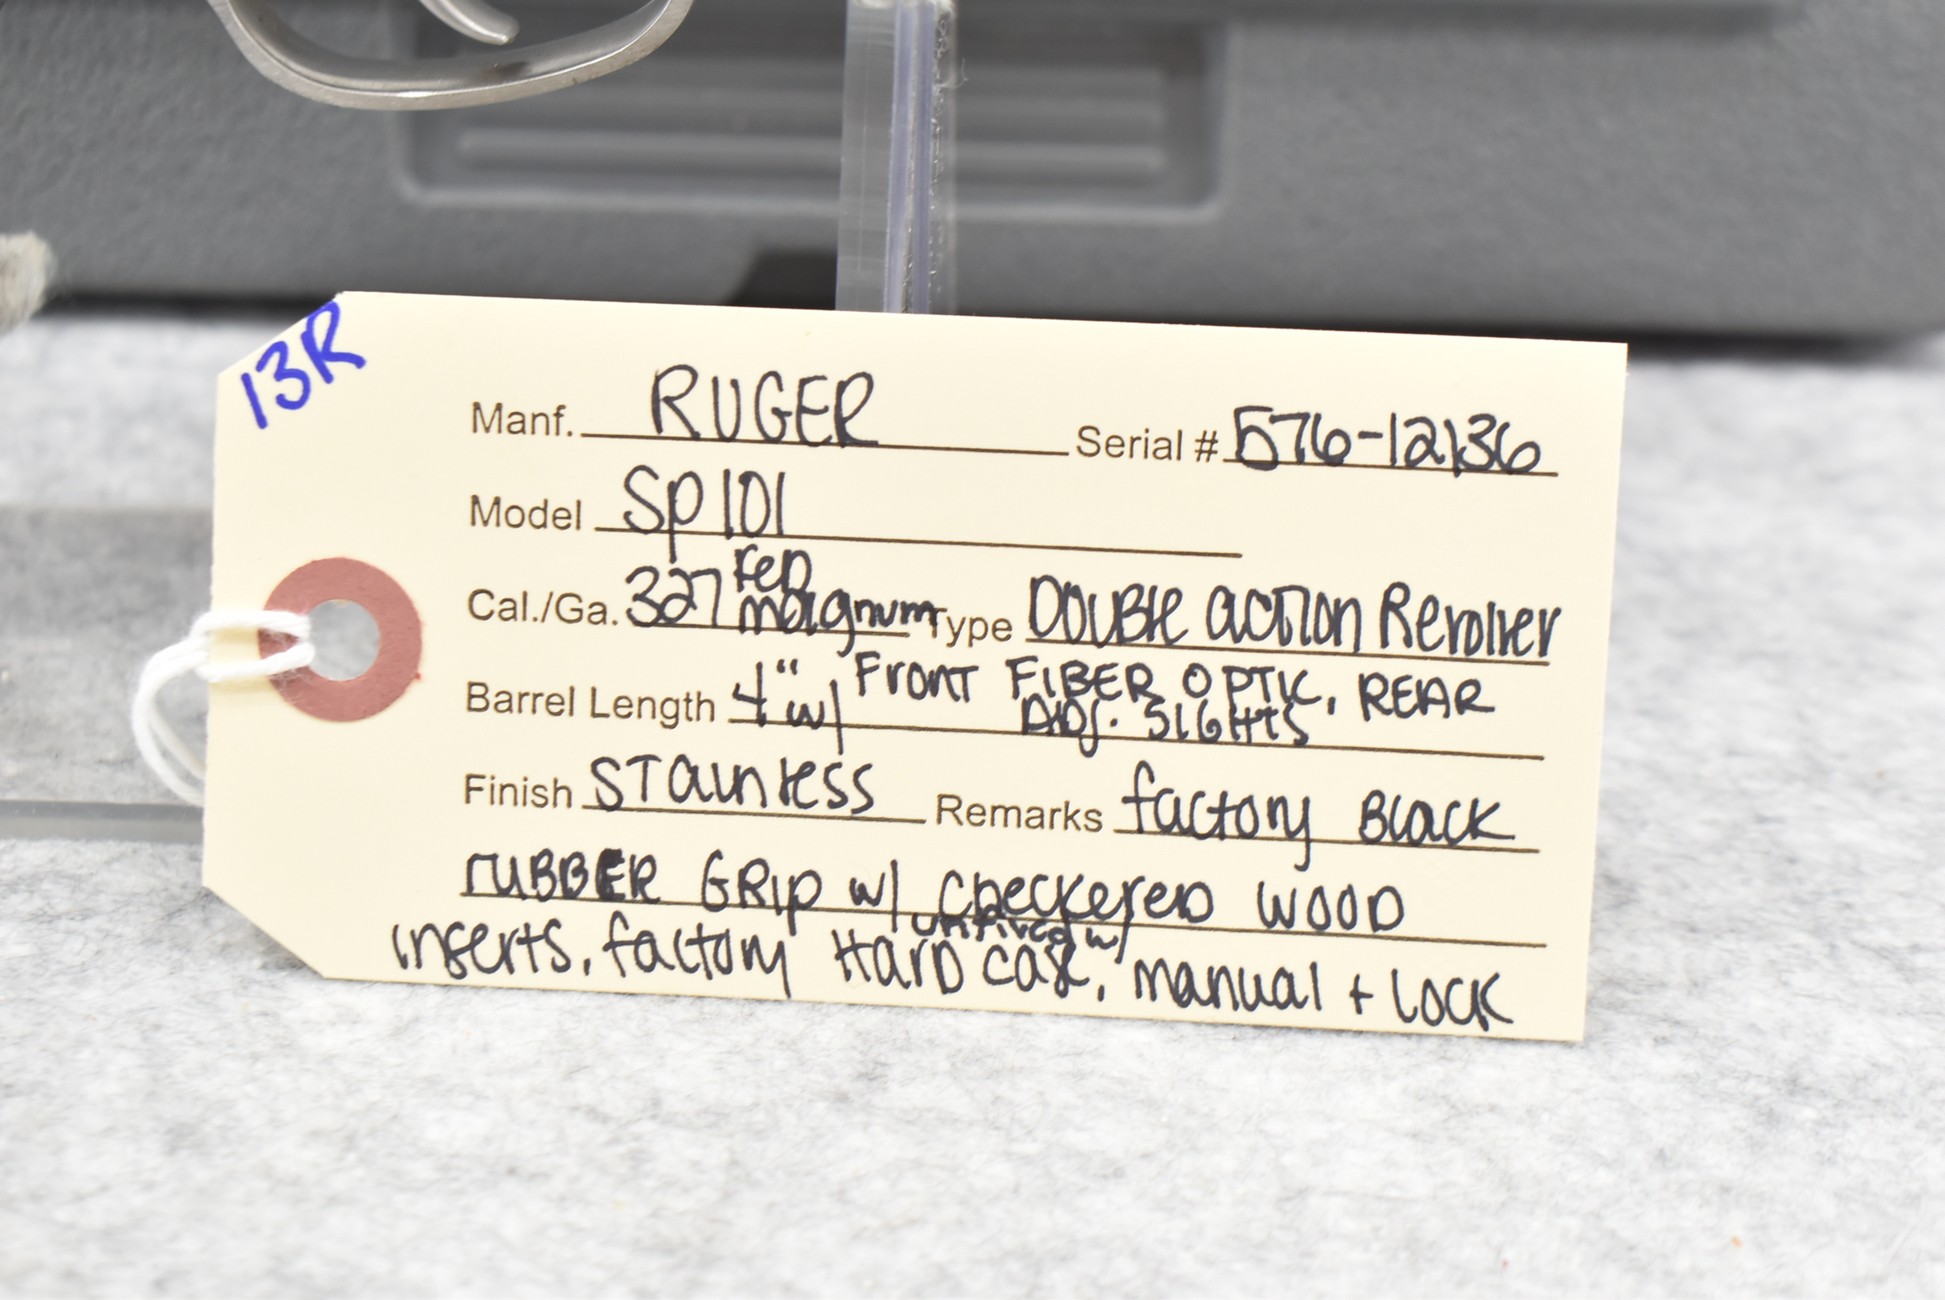 13R
Manf. RUGER Serial # 576-12136
Model SP101
Cal./Ga. 327 FED Magnum Type Double Action Revolver
Barrel Length 4" w/ Front FIBER OPTIC, REAR
ADJ. SIGHTS
Finish Stainless Remarks factory Black
rubber Grip w/ checkered wood
unfired w/
inserts, factory Hard case, manual + Lock